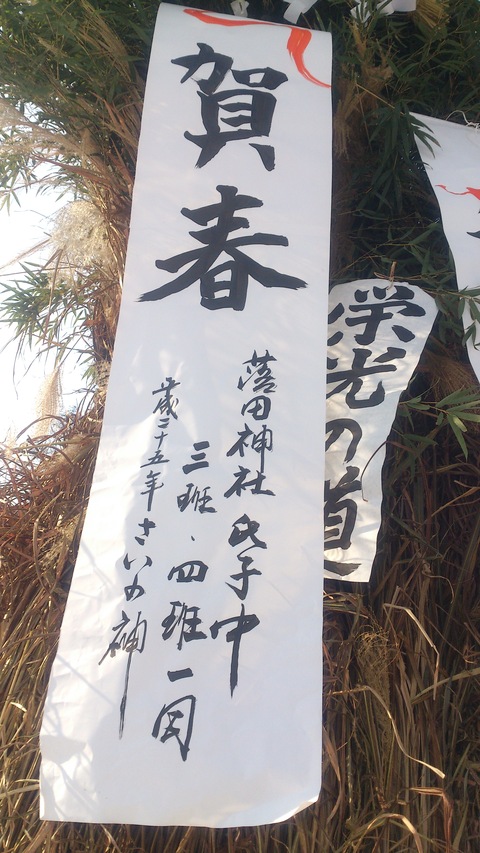 賀春
落田神社氏子中
三班、四班一同
歳二十五年さいの神
栄光の道